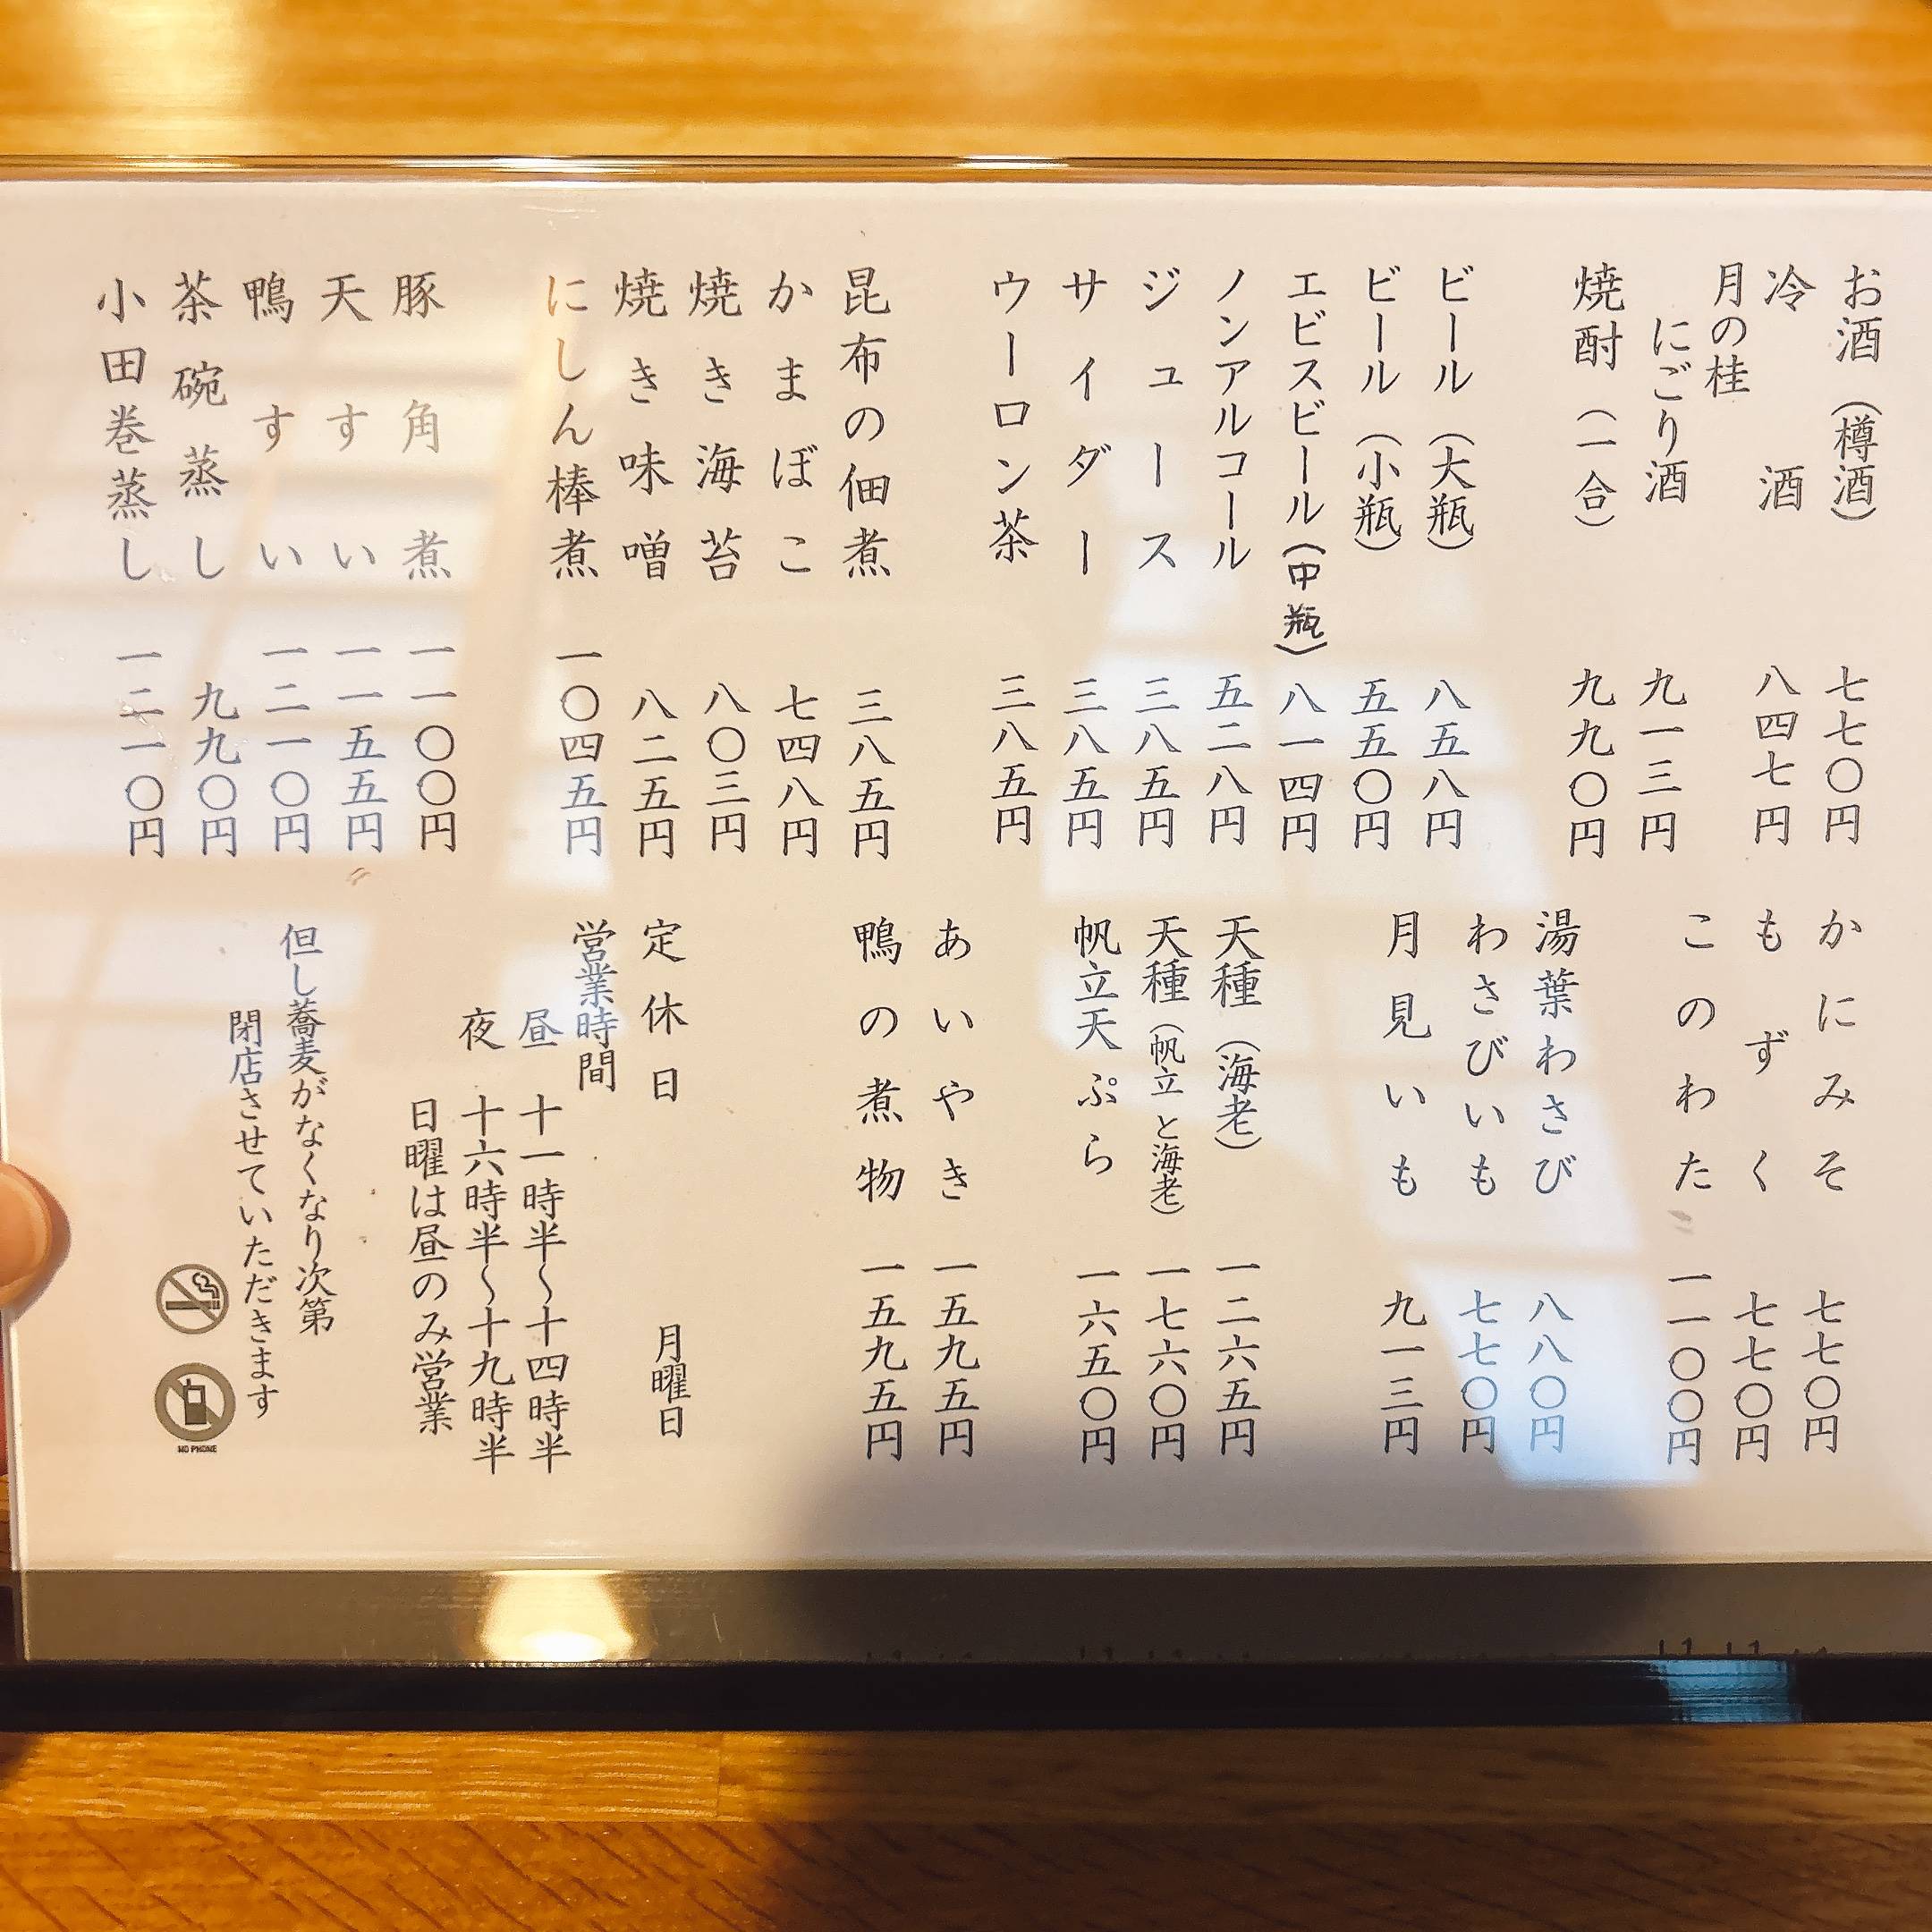 お酒（樽酒） 七七〇円
冷酒 八四七円
月の桂
にごり酒 九一三円
焼酎（一合） 九九〇円
ビール（大瓶） 八五八円
ビール（小瓶） 五五〇円
エビスビール（中瓶） 八一四円
ノンアルコール 五二八円
ジュース 三八五円
サイダー 三八五円
ウーロン茶 三八五円
昆布の佃煮 三八五円
かまぼこ 七四八円
焼き海苔 八〇三円
焼き味噌 八二五円
にしん棒煮 一〇四五円
豚角煮 一一〇〇円
天すい 一一五五円
鴨すい 一二一〇円
茶碗蒸し 九九〇円
小田巻蒸し 一二一〇円
かにみそ 七七〇円
もずく 七七〇円
このわた 一一〇〇円
湯葉わさび 八八〇円
わさびいも 七七〇円
月見いも 九一三円
天種（海老） 一二六五円
天種（帆立と海老） 一七六〇円
帆立天ぷら 一六五〇円
あいやき 一五九五円
鴨の煮物 一五九五円
定休日 月曜日
営業時間
昼 十一時半〜十四時半
夜 十六時半〜十九時半
日曜は昼のみ営業
但し蕎麦がなくなり次第
閉店させていただきます
NO PHONE